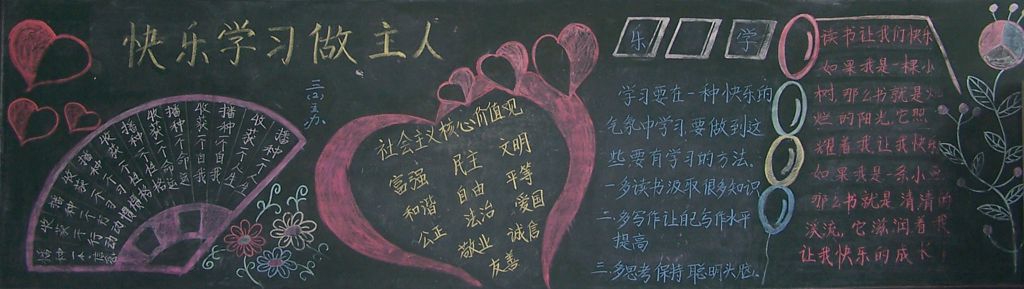 快乐学习做主人
三(3)办
播种一个信念
收获一个行动
播种一个行动
收获一个习惯
播种一个习惯
收获一个性格
播种一个性格
收获一个命运
播种一个命运
收获一个自我
播种一个自我
收获一个人生
播种一个人生
社会主义核心价值观
富强 民主 文明
和谐 自由 平等
公正 法治 爱国
敬业 诚信
友善
乐 学
学习要在一种快乐的
气氛中学习要做到这
些要有学习的方法。
一多读书汲取很多知识
二.多写作让自己写作水平
提高
三.多思考保持聪明头脑。
读书让我们快乐
如果我是一棵小
树,那么书就是火
烂的阳光,它照
耀着我让我快乐
如果我是一条小鱼
那么书就是清清的
溪流,它滋润着我
让我快乐的成长!